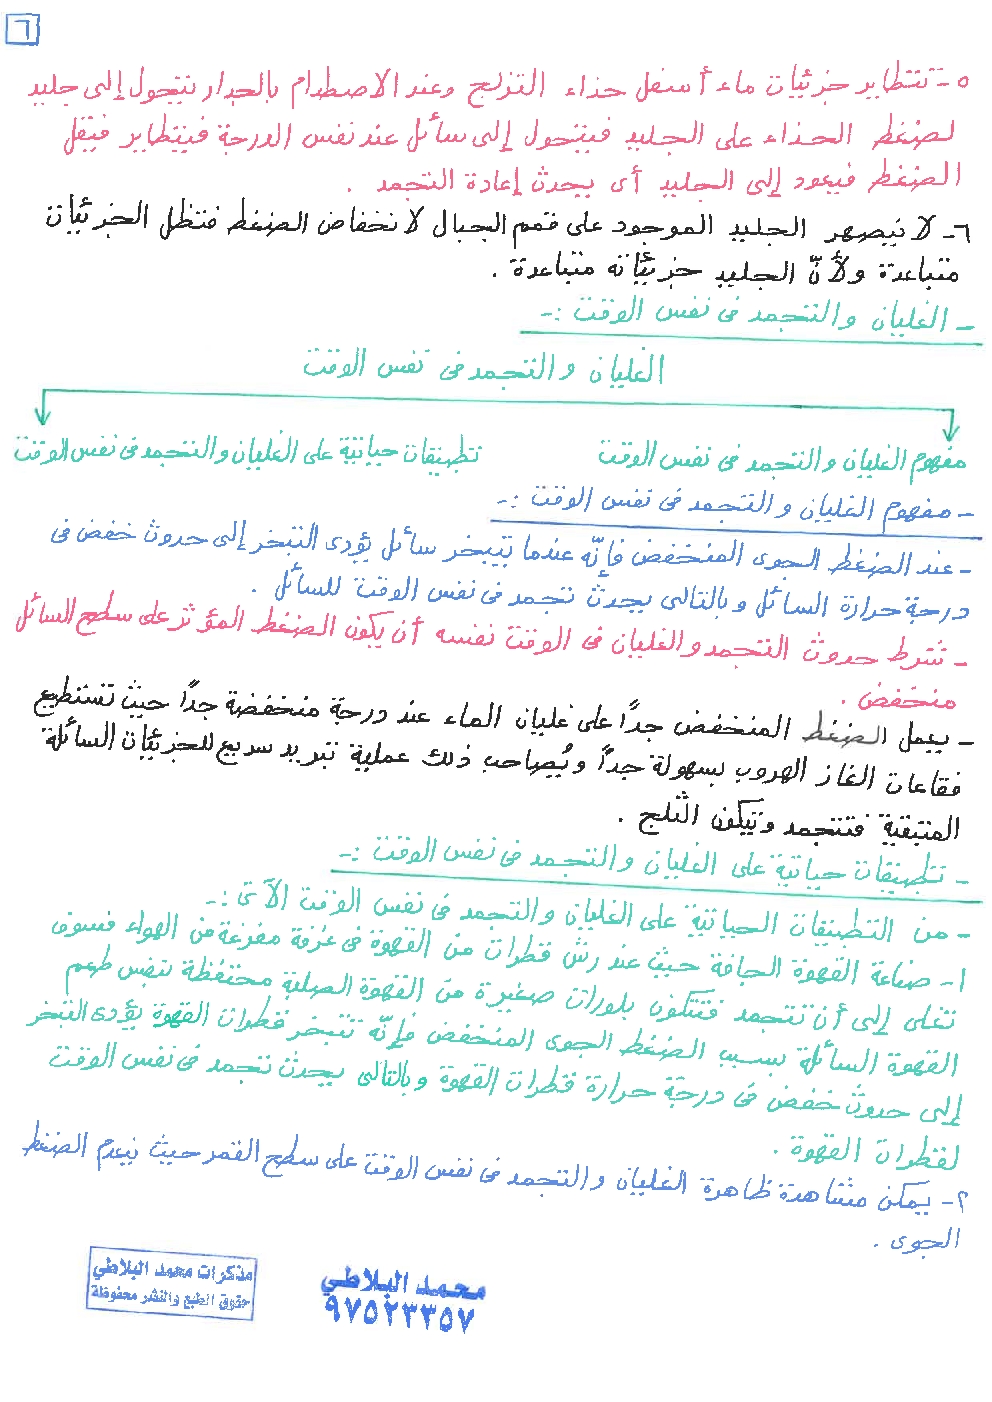 ٦
٥- تتطاير جزيئات ماء أسفل حذاء التزلج وعند الاصطدام بالجدار تتحول إلى جليد
لضغط الحذاء على الجليد فيتحول إلى سائل عند نفس الدرجة فيتطاير فيقل
الضغط فيعود إلى الجليد أى يحدث إعادة التجمد .
٦- لا ينصهر الجليد الموجود على قمم الجبال لانخفاض الضغط فتظل الجزيئات
متباعدة ولأنّ الجليد جزيئاته متباعدة .
- الغليان والتجمد فى نفس الوقت :-
الغليان والتجمد فى نفس الوقت
مفهوم الغليان والتجمد فى نفس الوقت
تطبيقات حياتية على الغليان والتجمد فى نفس الوقت
- مفهوم الغليان والتجمد فى نفس الوقت :-
- عند الضغط الجوى المنخفض فإنّه عندما يتبخر سائل يؤدى التبخر إلى حدوث خفض فى
درجة حرارة السائل وبالتالى يحدث تجمد فى نفس الوقت للسائل .
- شرط حدوث التجمد والغليان فى الوقت نفسه أن يكون الضغط المؤثر على سطح السائل
منخفض .
- يعمل الضغط المنخفض جداً على غليان الماء عند درجة منخفضة جداً حيث تستطيع
فقاعات الغاز الهروب بسهولة جداً ويُصاحب ذلك عملية تبريد سريع للجزيئات السائلة
المتبقية فتتجمد ويتكون الثلج .
- تطبيقات حياتية على الغليان والتجمد فى نفس الوقت :-
- من التطبيقات الحياتية على الغليان والتجمد فى نفس الوقت الآتى :-
١- صناعة القهوة الجافة حيث عند رش قطرات من القهوة فى غرفة مفرغة من الهواء فسوف
تغلى إلى أن تتجمد فتتكون بلورات صغيرة من القهوة الصلبة محتفظة بنفس طعم
القهوة السائلة بسبب الضغط الجوى المنخفض فإنّه تتبخر قطرات القهوة يؤدى التبخر
إلى حدوث خفض فى درجة حرارة قطرات القهوة وبالتالى يحدث تجمد فى نفس الوقت
لقطرات القهوة .
٢- يمكن مشاهدة ظاهرة الغليان والتجمد فى نفس الوقت على سطح القمر حيث ينعدم الضغط
الجوى .
مذكرات محمد البلاطي
حقوق الطبع والنشر محفوظة
محمد البلاطي
٩٧٥٢٣٣٥٧